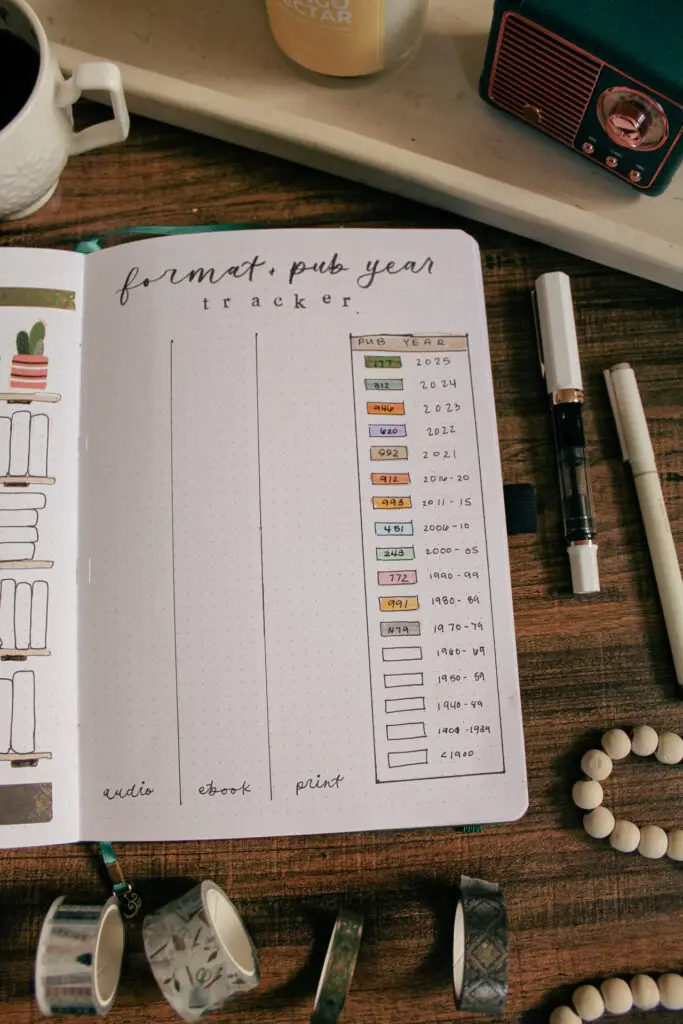 NECTAR
format + pub year
tracker
PUB YEAR
177 2025
312 2024
946 2023
620 2022
992 2021
912 2016-20
993 2011-15
451 2006-10
243 2000-05
772 1990-99
991 1980-89
N79 1970-79
1960-69
1950-59
1940-49
1900-1939
<1900
audio
ebook
print